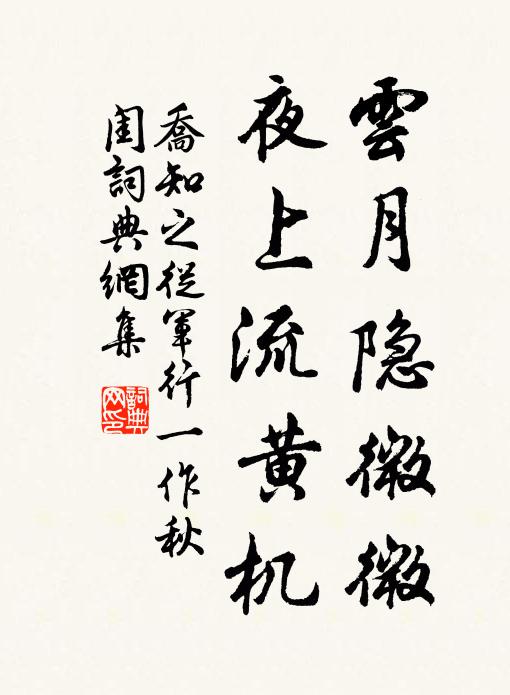 雲月隐微微
夜上流黄机
喬知之從軍行一作秋
閨詞典網集
詞典网印